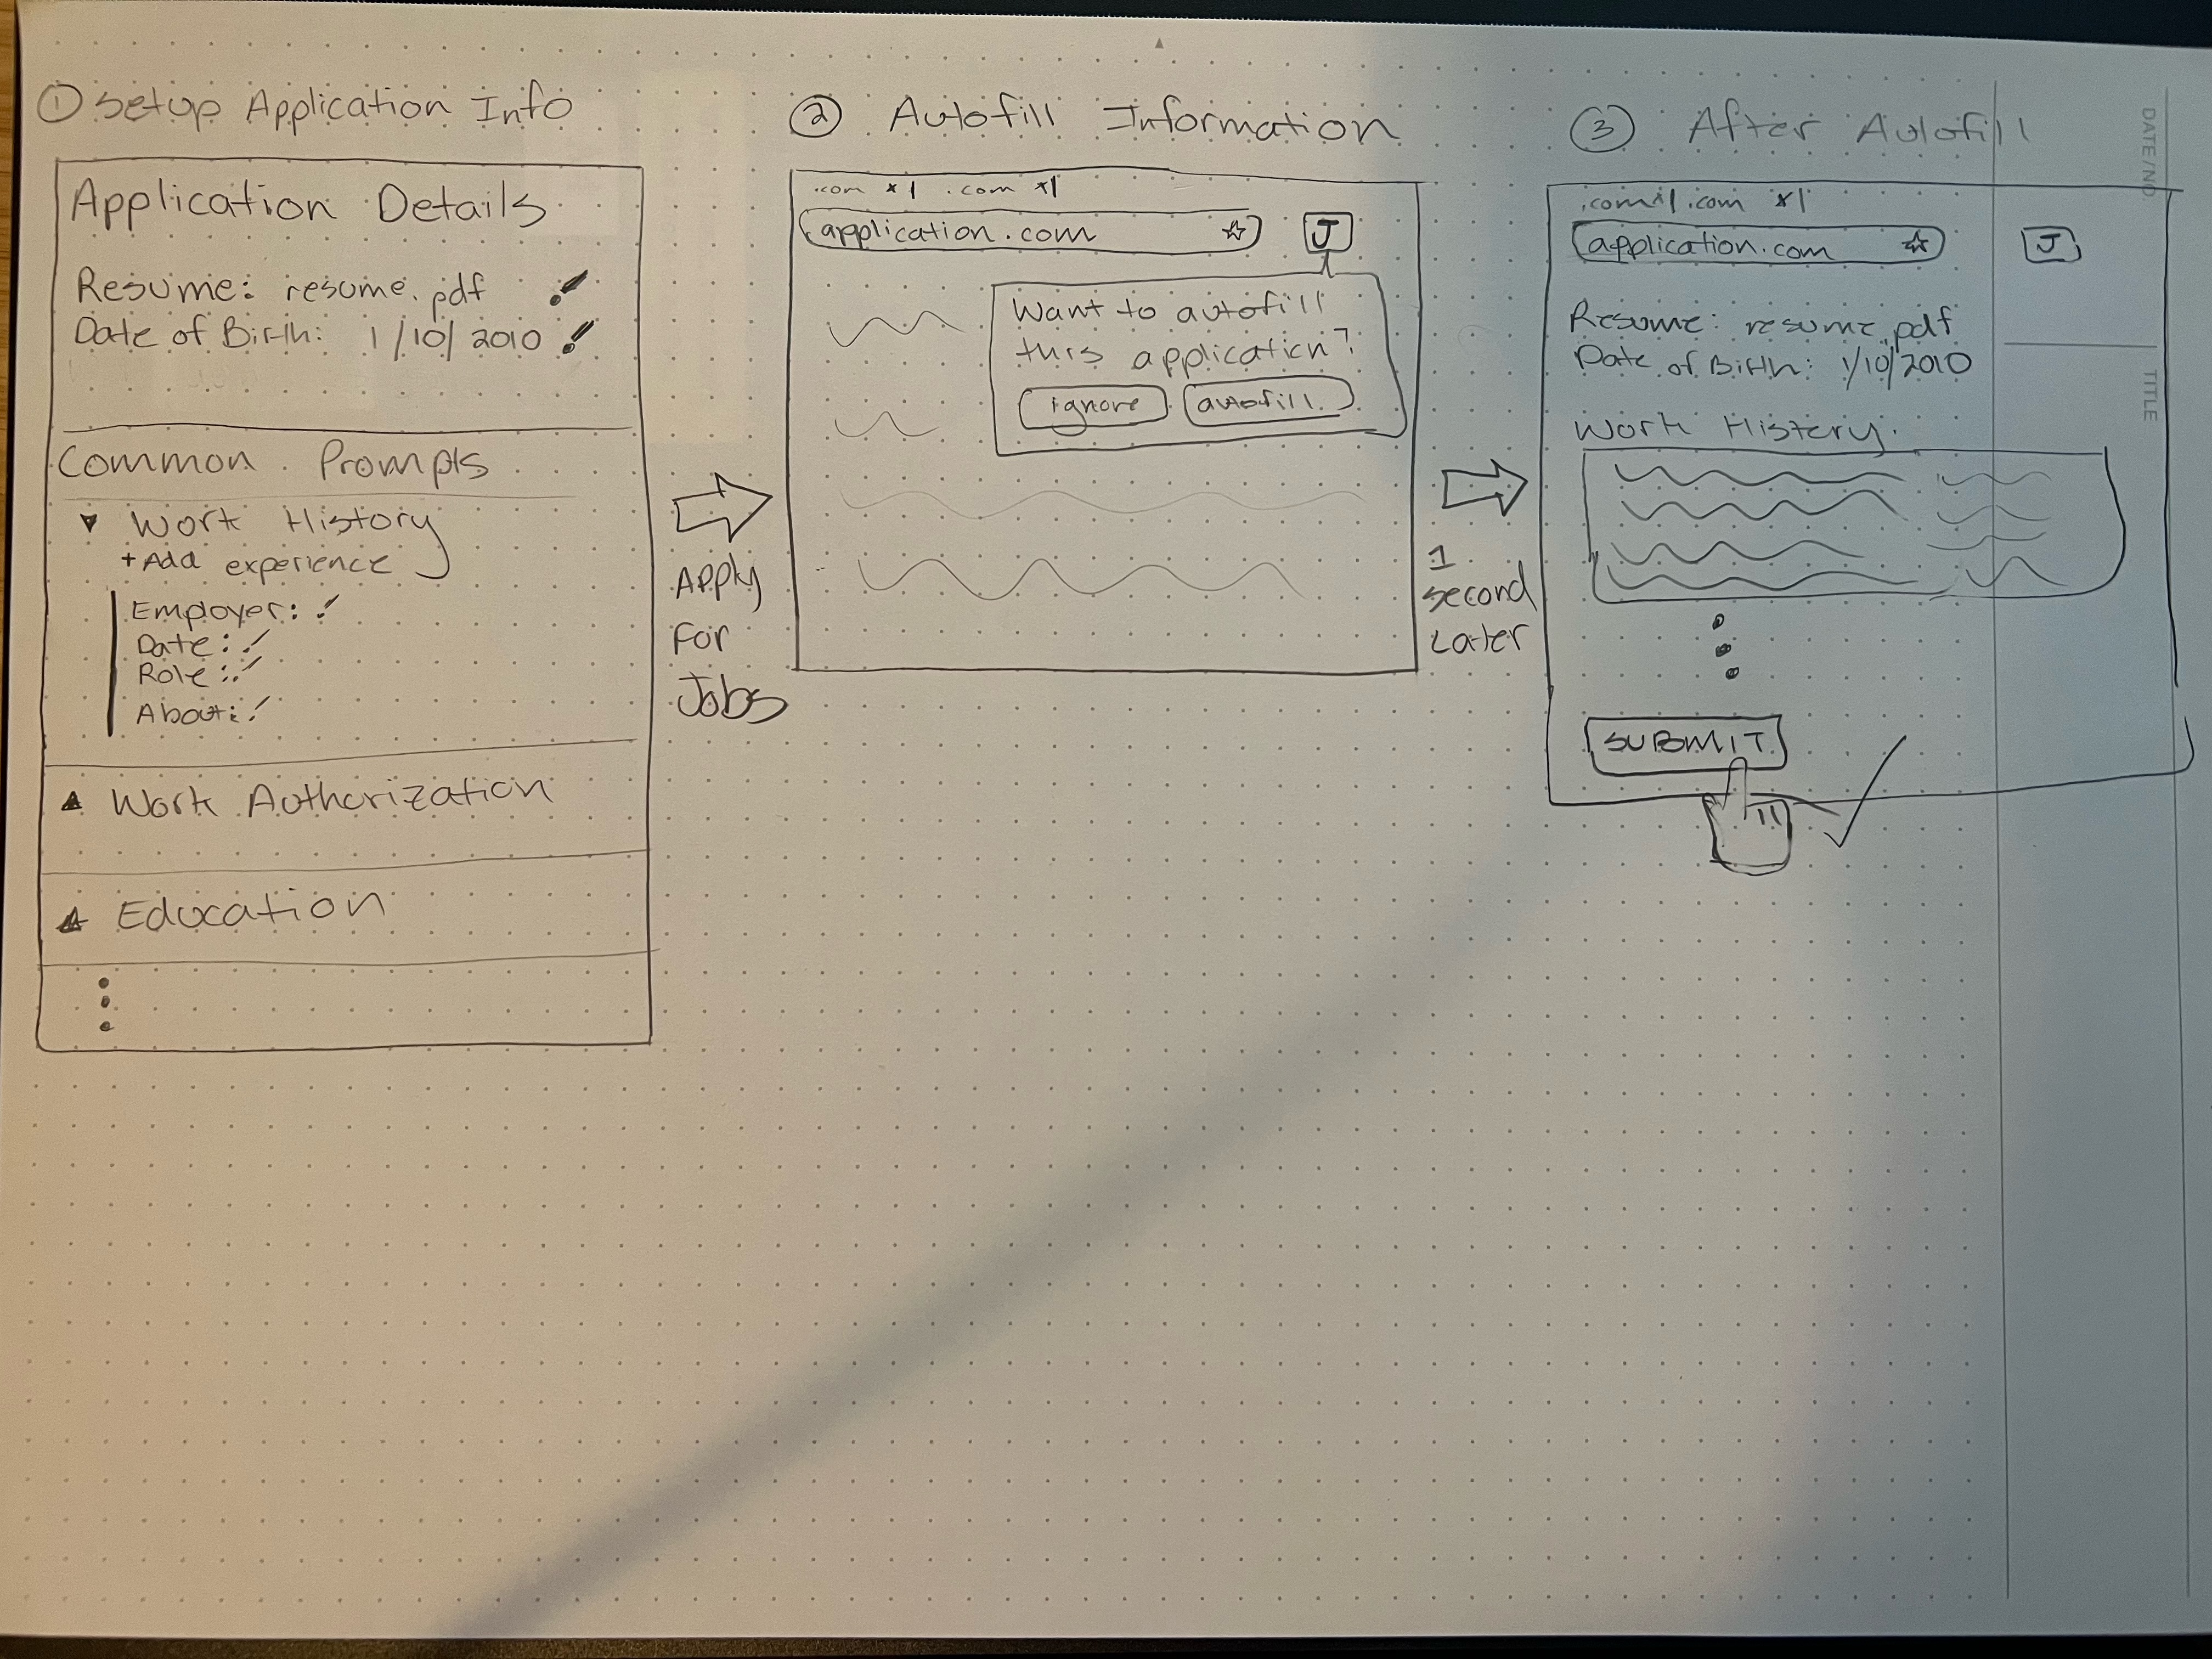 ① Setup Application Info
Application Details
Resume: resume.pdf
Date of Birth: 1/10/2010
Common Prompts
Work History
+Add experience
Employer:
Date:
Role:
About:
Work Authorization
Education
Apply
For
Jobs
② Autofill Information
.com x| .com x|
application.com ☆
J
Want to autofill
this application?
ignore autofill
1
second
Later
③ After Autofill
.com x| .com x|
application.com ☆
J
Resume: resume.pdf
Date of Birth: 1/10/2010
Work History:
SUBMIT
DATE/NO
TITLE